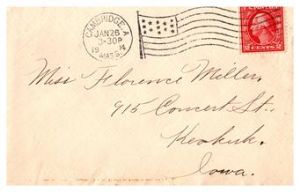 CAMBRIDGE, A
JAN 26
3-30P
19 14
MASS.
2 CENTS 2
Miss Florence Miller,
915 Concert St.,
Keokuk,
Iowa.